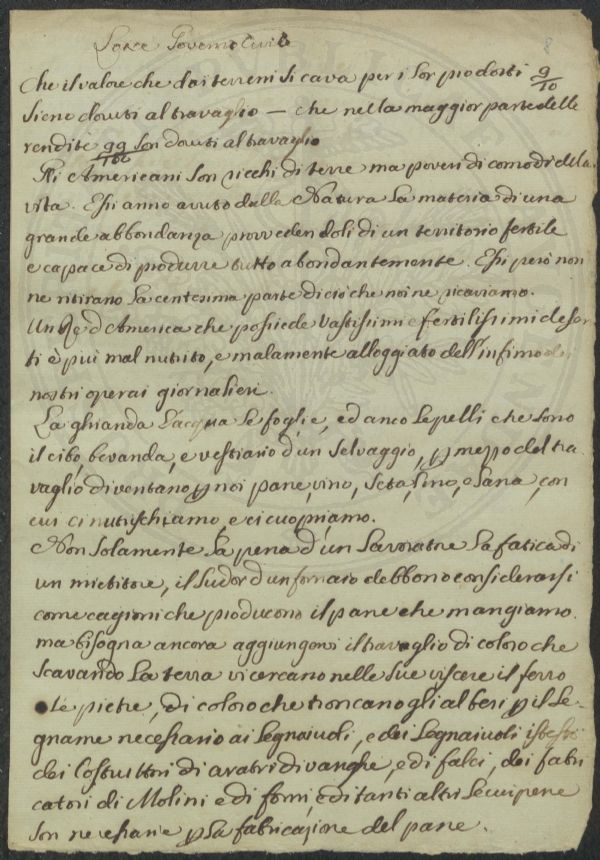 Locce Governo Civile
8
Che il valore che dai terreni si cava per i lor prodotti 9/10
sieno dovuti al travaglio — che nella maggior parte delle
rendite 99/100 son dovuti al travaglio
Gli Americani son ricchi di terre ma poveri di comodi della
vita. Essi anno avuto dalla Natura la materia di una
grande abbondanza provvedendoli di un territorio fertile
e capace di produrre tutto abondantemente. Essi però non
ne ritirano la centesima parte di ciò che noi ne ricaviamo.
Un Re d'America che possiede vastissimi e fertilissimi deser
ti è più mal nutrito, e malamente alloggiato dell'infimo de
nostri operai giornalieri.
La ghianda l'acqua le foglie, ed anco le pelli che sono
il cibo, bevanda, e vestiario d'un selvaggio, p mezzo del tra
vaglio diventano p noi pane, vino, seta, lino, e lana, con
cui ci nutrischiamo, e ci cuopriamo.
Non solamente la pena d'un lavoratore la fatica di
un mietitore, il sudor d'un fornaio debbono considerarsi
come cagioni che producono il pane che mangiamo.
ma bisogna ancora aggiungervi il travaglio di coloro che
scavando la terra vi cercano nelle sue viscere il ferro
e le pietre, di coloro che troncano gli alberi p il le-
gname necessario ai legnaiuoli, e dei legnaiuoli istessi
dei Costruttori di aratri di vanghe, e di falci, dei fabri
catori di Molini e di forni, e di tanti altri le cui pene
son necessarie p la fabricazione del pane.